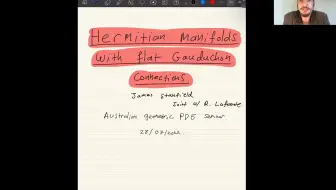 Hermitian Manifolds
with flat Gauduchon
Connections
James Stanfield
Joint w/ R. Lafuente
Australian geometric PDE Seminar